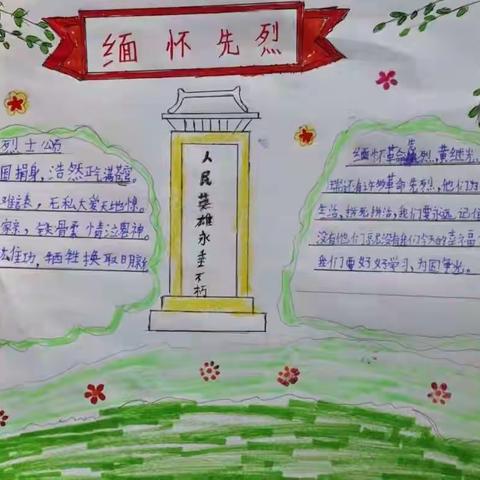 缅怀先烈
烈士颂
国捐身,浩然正气满苍穹。
,无私大爱天地惊。
,铁骨柔情泣鬼神。
佳功,牺牲换取日月
人民英雄永垂不朽
缅怀革命先烈,黄继光
还有许多革命先烈,他们为
生活,我们要永远记住
没有他们就没有我们今天的幸福
我们要好好学习,为国争光。